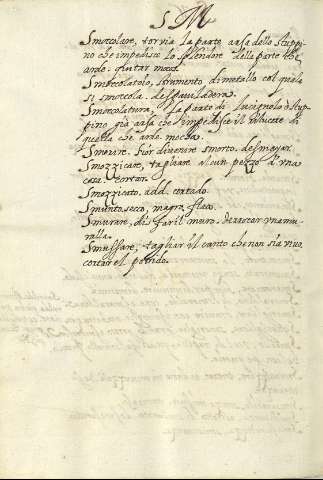 S M
Smoccolare, tor via la parte arsa dello stuppi-
no che impedisce lo splendore della parte che
arde.
Smoccolatoio, strumento di metallo col quale
si smoccola.
Smoccolatura, la parte di lucignolo o stup-
pino già arsa che impedisce il
quella che arde. mocha.
Smorire. divenire smorto. desmayar.
Smozzicare, tagliare alcun pezzo d'una
cosa. cortar.
Smozzicato, add. cortado.
Smunto, secco, magro, flaco.
Smurare, disfar il muro. derrocar una mu-
ralla.
Smussare, tagliar il canto che non sia vivo,
cortar el